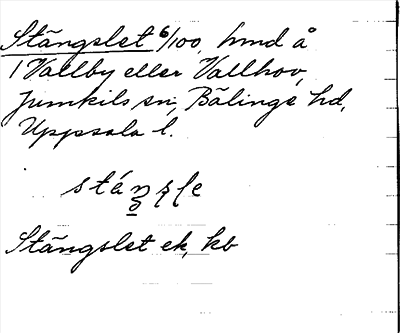 Stängslet 6/100, hmd å
1 Vallby eller Vallhov,
Jumkils sn, Bälinge hd,
Uppsala l.
Stängslet ek, kb